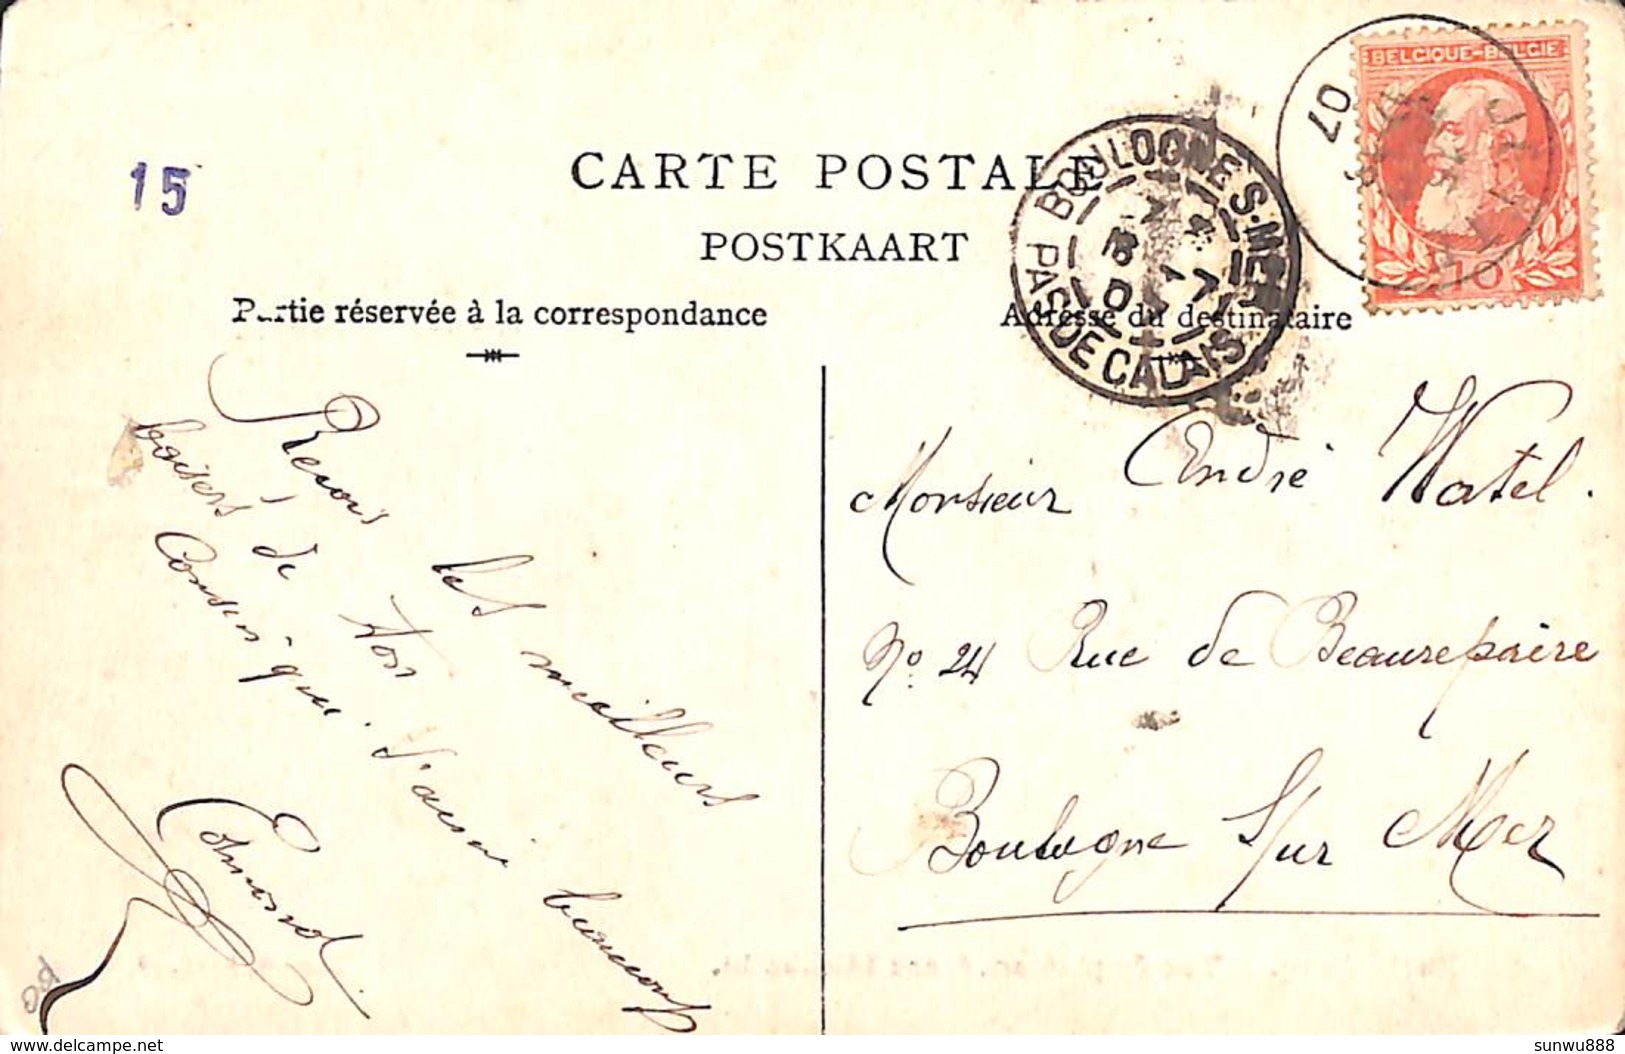 BELGIQUE-BELGIE
10
07
15
CARTE POSTALE
POSTKAART
BOULOGNE-S-MER
PAS DE CALAIS
Partie réservée à la correspondance
Adresse du destinataire
Reçois les meilleurs
baisers de ton
Cousin qui t'aime beaucoup
Edmond
Monsieur André Watel.
No 24 Rue de Beaurepaire
Boulogne s/ur Mer
sunwu888